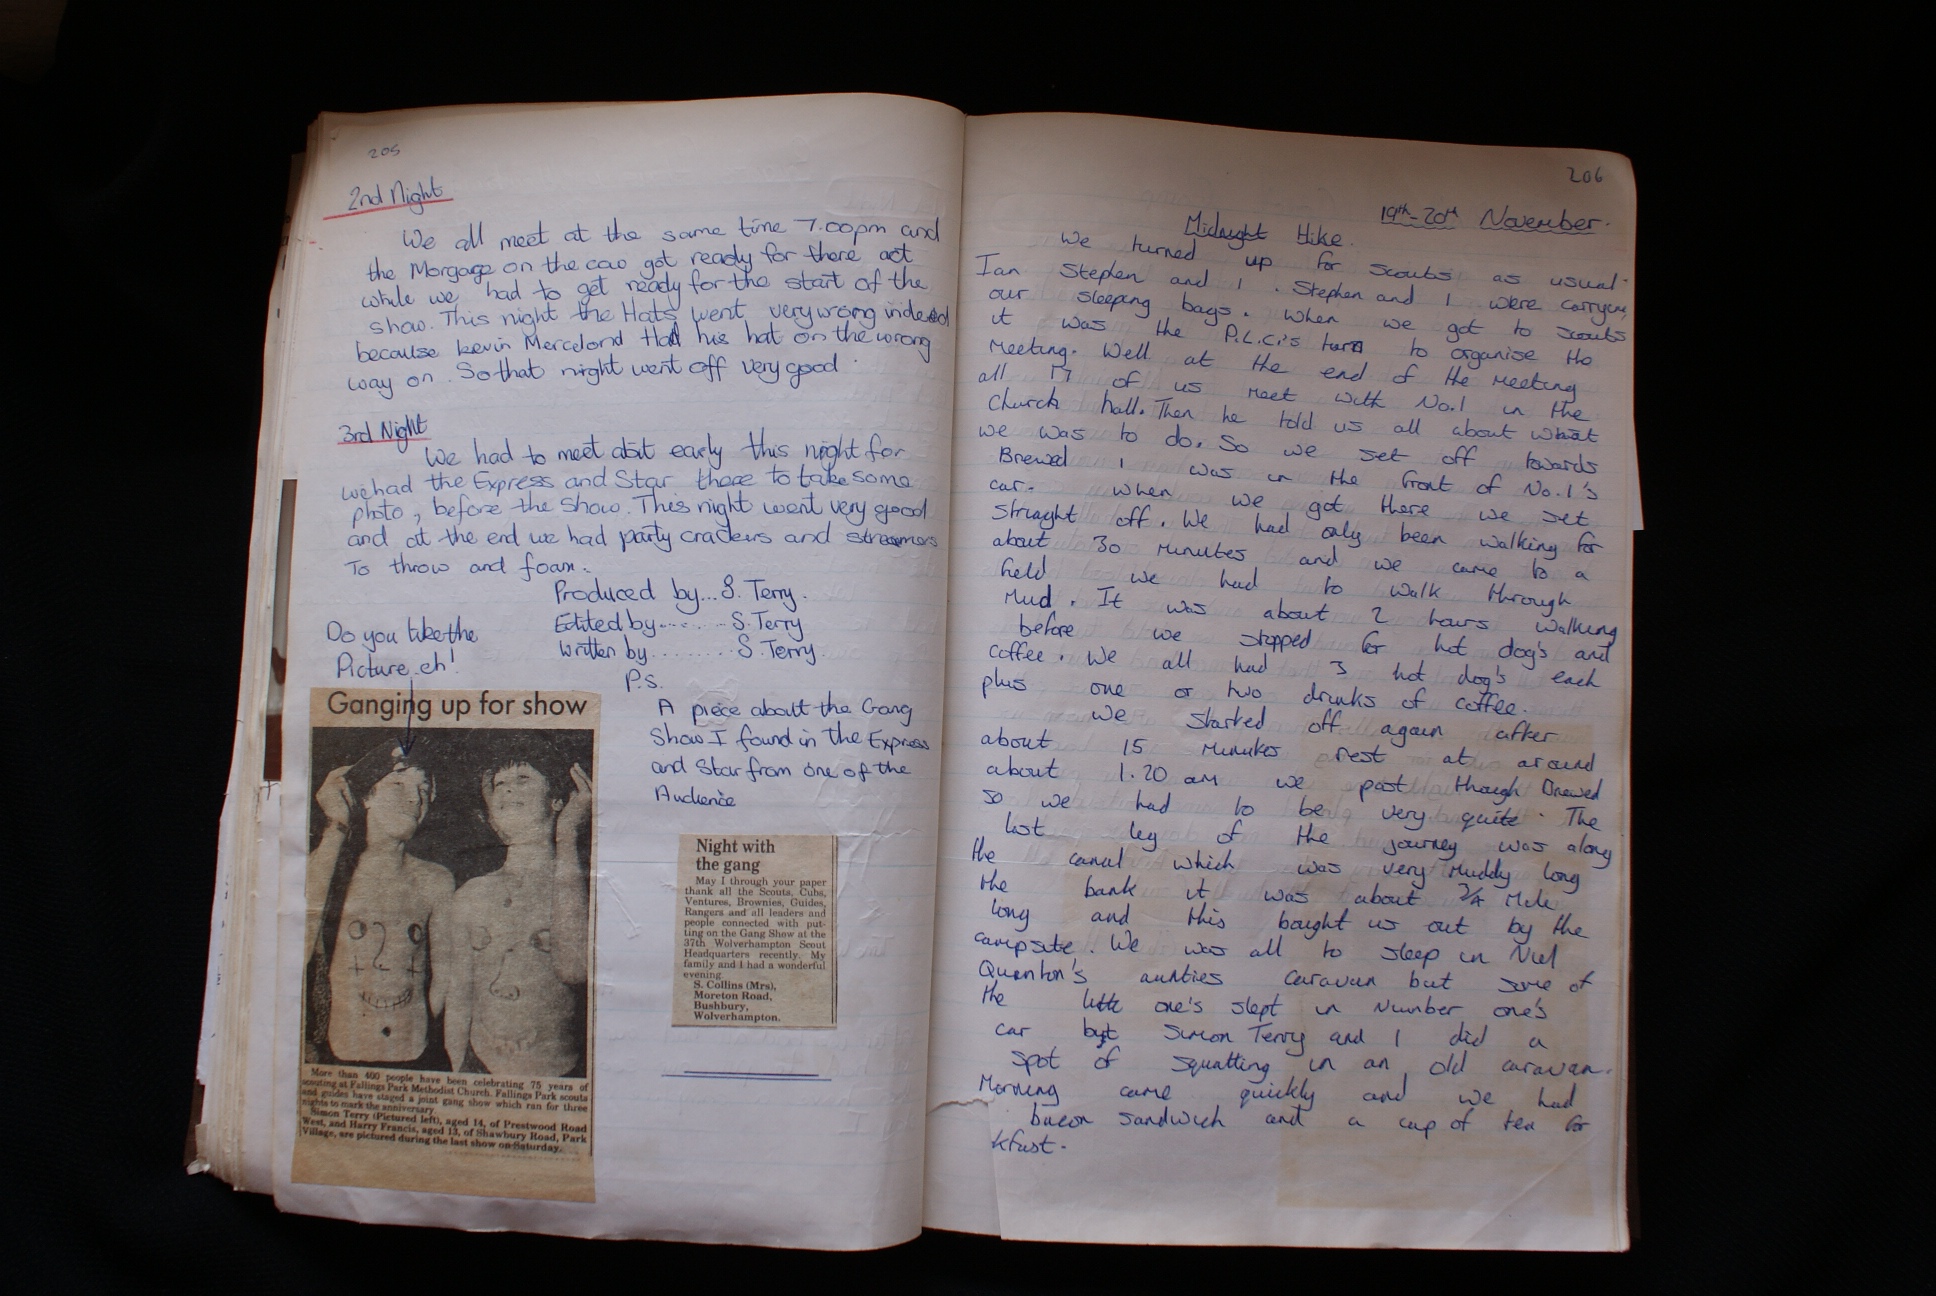 205
2nd Night
We all meet at the same time 7.00pm and
the Morgage on the cow got ready for there act
while we had to get ready for the start of the
show. This night the Hats went very wrong indeed
because kevin Had his hat on the wrong
way on. So that night went off very good.
3rd Night
We had to meet abit early this night for
we had the Express and Star there to take some
photo, before the show. This night went very good
and at the end we had party crackers and streamers
To throw and foam.
Produced by... S. Terry.
Edited by........ S. Terry
Written by........ S. Terry.
Do you like the
Picture eh!
P.S.
A piece about the Gang
Show I found in the Express
and Star from one of the
Audience
Ganging up for show
More than 400 people have been celebrating 75 years of
scouting at Fallings Park Methodist Church. Fallings Park scouts
and guides have staged a joint gang show which ran for three
nights to mark the anniversary.
Simon Terry (Pictured left), aged 14, of Prestwood Road
West, and Harry Francis, aged 13, of Shawbury Road, Park
Village, are pictured during the last show on Saturday.
Night with
the gang
May I through your paper
thank all the Scouts, Cubs,
Ventures, Brownies, Guides,
Rangers and all leaders and
people connected with put-
ting on the Gang Show at the
37th Wolverhampton Scout
Headquarters recently. My
family and I had a wonderful
evening.
S. Collins (Mrs),
Moreton Road,
Bushbury,
Wolverhampton.
206
19th-20th November.
Midnight Hike.
We turned up for scouts as usual.
Ian Stephen and I. Stephen and I were carrying
our sleeping bags. When we got to scouts
it was the P.L.C.'s turn to organise the
Meeting. Well at the end of the Meeting
all 17 of us meet with No.1 in the
Church hall. Then he told us all about what
we was to do. So we set off towards
Brewed I was in the front of No.1's
car. When we got there we set
striaght off. We had only been walking for
about 30 minutes and we came to a
field we had to walk through
Mud. It was about 2 hours walking
before we stopped for hot dog's and
coffee. We all had 3 hot dog's each
plus one or two drinks of coffee.
We started off again after
about 15 minutes rest at around
about 1.20 am we past though Brewed
so we had to be very quite. The
last leg of the journey was along
the canal which was very Muddy long
the bank it was about 3/4 Mile
long and this bought us out by the
campsite. We was all to sleep in Niel
Quenton's aunties caravan but some of
the little one's slept in Number one's
car but Simon Terry and I did a
spot of squatting in an old caravan.
Morning came quickly and we had
bacon sandwich and a cup of tea for
kfast.